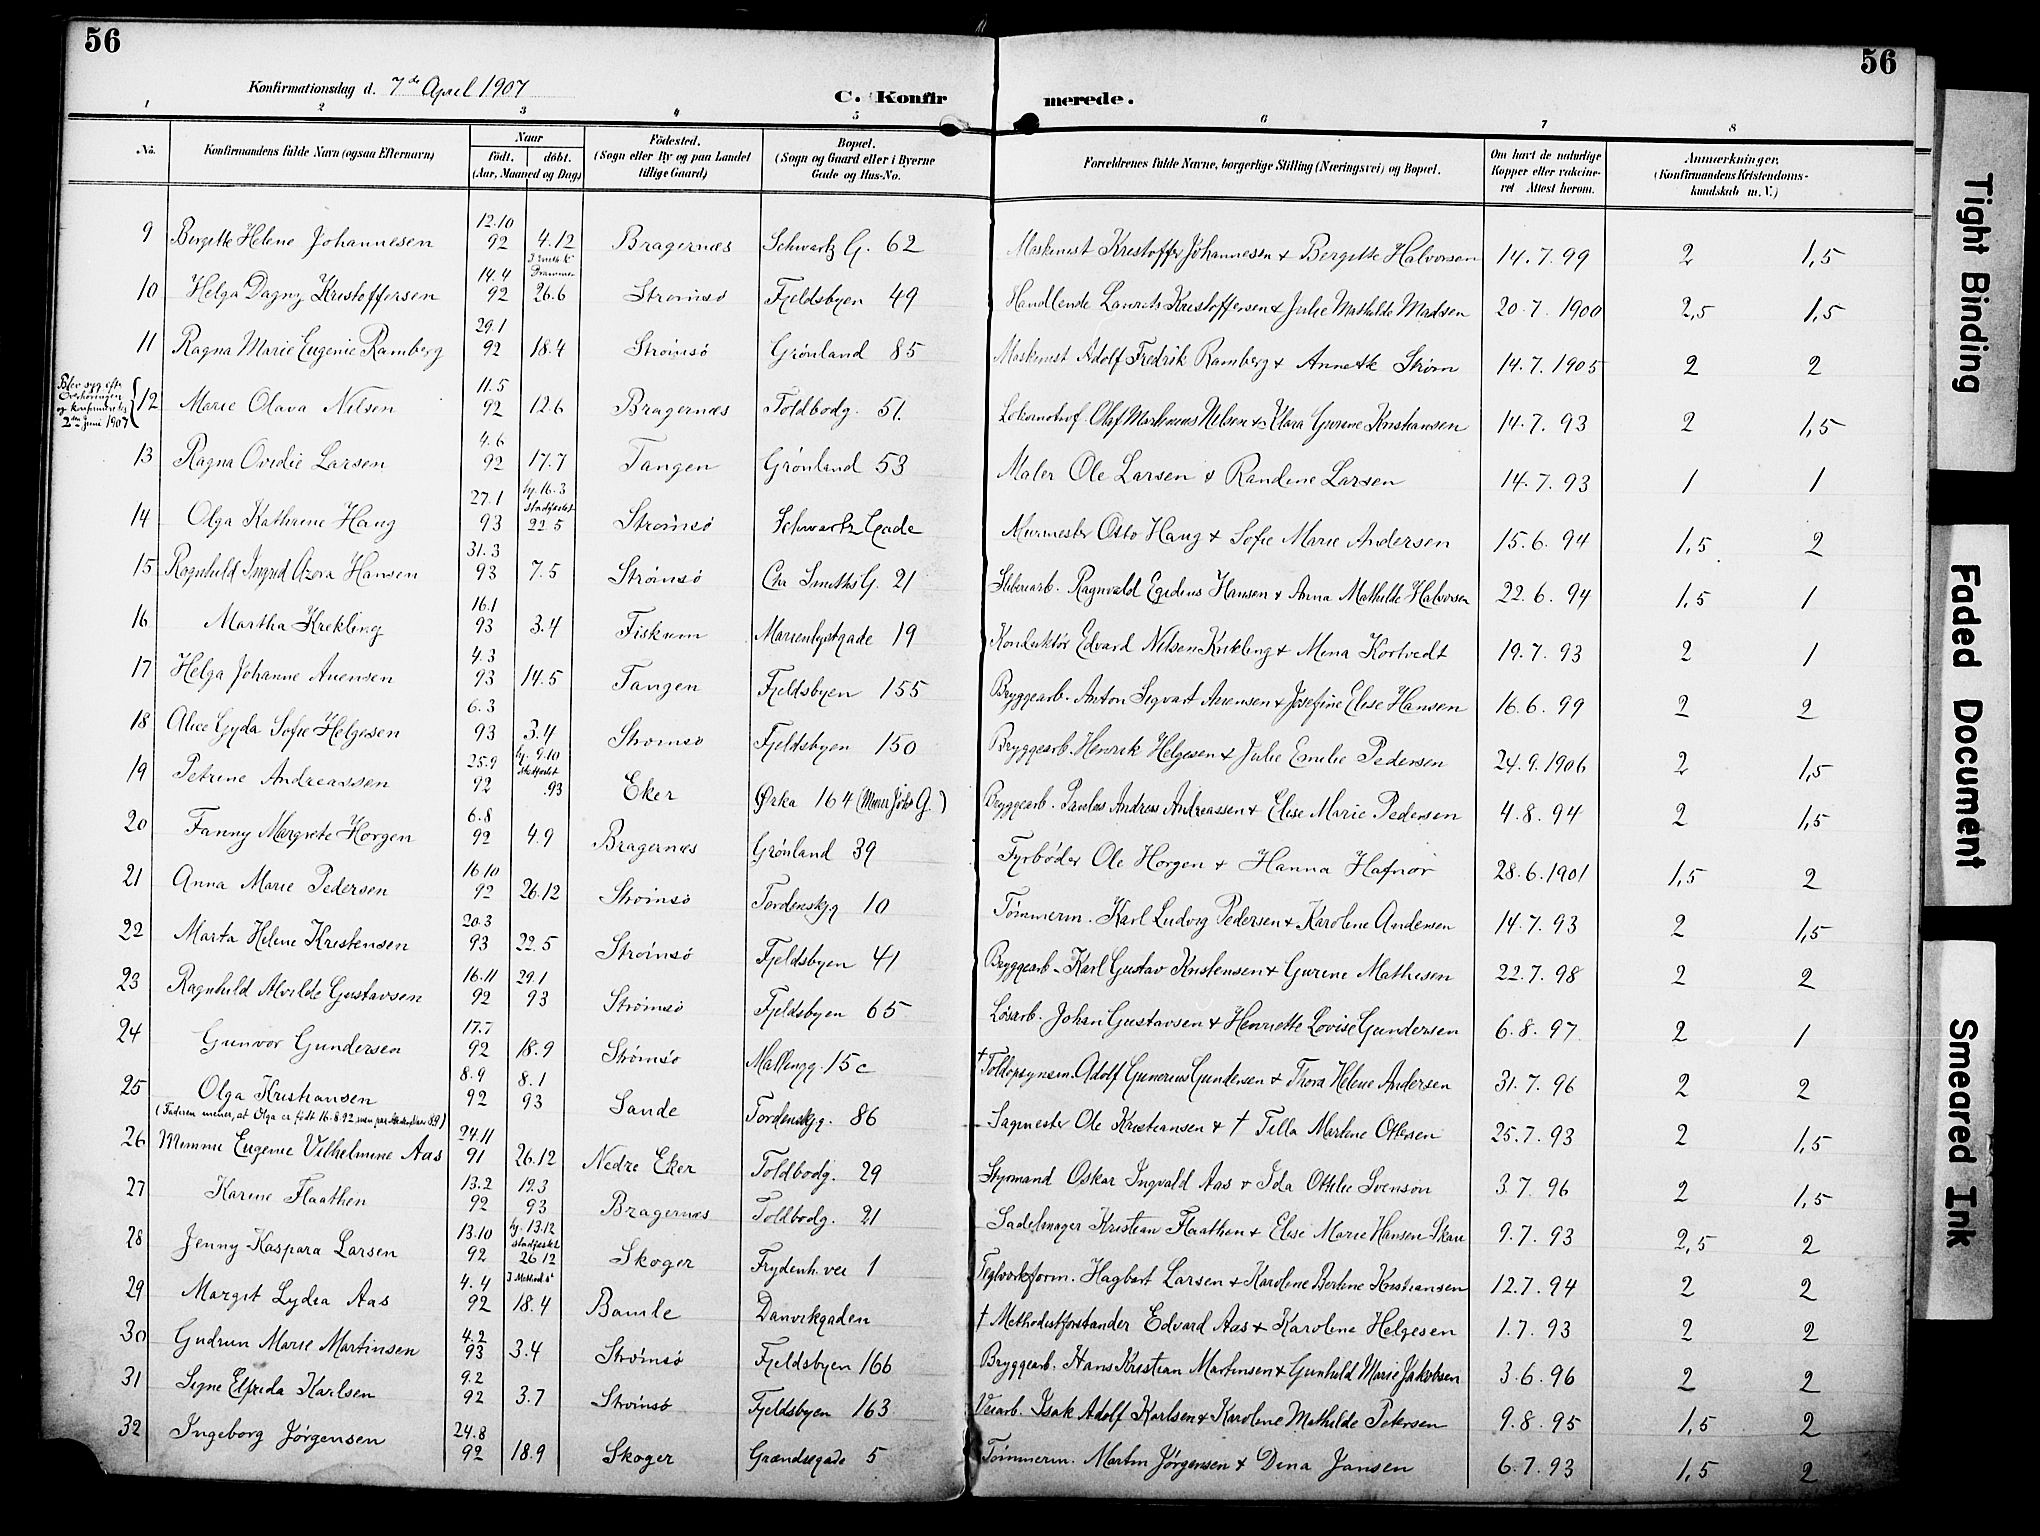 56
56
Konfirmationsdag d. 7de April 1907
C. Konfirmerede.
1 2 3 4 5 6 7 8
No.
Konfirmandens fulde Navn (ogsaa Efternavn)
Naar
født. døbt.
(Aar, Maaned og Dag)
Fødested.
(Sogn eller By og paa Landet
tillige Gaard)
Bopæl.
(Sogn og Gaard eller i Byerne
Gade og Hus-No.
Forældrenes fulde Navne, borgerlige Stilling (Næringsvei) og Bopæl.
Om havt de naturlige
Kopper eller vakcine-
ret Attest herom.
Anmærkninger.
(Konfirmandens Kristendoms-
kundskab m. V.)
9 Bergitte Helene Johannesen 12.10 92 4.12 Bragernæs Schwartz G. 62 Maskinist Kristoffer Johannesen + Bergitte Halvorsen 14.7.99 2 1,5
10 Helga Dagny Kristoffersen 14.4 92 26.6 Strømsø Fjeldsbyen 49 Handlende Laurits Kristoffersen + Julie Mathilde Madsen 20.7.1900 2,5 1,5
11 Ragna Marie Eugenie Ramberg 29.1 92 18.4 Strømsø Grønland 85 Maskinist Adolf Fredrik Ramberg + Annette Strøm 14.7.1905 2 2
Blev syg efter
Overhøringen
og konfirmertes
2den juni 1907
12 Marie Olava Nilsen 11.5 92 12.6 Bragernæs Toldbodg. 51. Lokomotivf Olaf Martinius Nilsen + Klara Gurine Kristiansen 14.7.93 2 1,5
13 Ragna Ovidie Larsen 4.6 92 17.7 Tangen Grønland 53 Maler Ole Larsen + Randine Larsen 14.7.93 1 1
14 Olga Kathrine Haug 27.1 93 hj. 16.3 stadfæstet 22.5 Strømsø Schwartz Gade Murmester Otto Haug + Sofie Marie Andersen 15.6.94 1,5 2
15 Ragnhild Ingrid Azora Hansen 31.3 93 7.5 Strømsø Chr Smiths G. 21 Sliberiarb. Ragnvald Egidius Hansen + Anna Mathilde Halvorsen 22.6.94 1,5 1
16 Martha Krekling 16.1 93 3.4 Fiskum Marienlystgade 19 Konduktør Edvard Nilsen Krekling + Mina Kortvedt 19.7.93 2 1
17 Helga Johanne Auensen 4.3 93 14.5 Tangen Fjeldsbyen 155 Bryggearb. Anton Sigvart Auensen + Josefine Elise Hansen 16.6.99 2 2
18 Alice Gyda Sofie Helgesen 6.3 93 3.4 Strømsø Fjeldsbyen 150 Bryggearb. Henrik Helgesen + Julie Emilie Pedersen 24.9.1906 2 1,5
19 Petrine Andreassen 25.9 92 hj. 9.10 .93 Eker Ørka 164 Bryggearb. Paulus Andreas Andreassen + Elise Marie Pedersen 4.8.94 2 1,5
20 Fanny Margrete Horgen 6.8 92 4.9 Bragernæs Grønland 39 Fyrbøder Ole Horgen + Hanna Hafnor 28.6.1901 1,5 2
21 Anna Marie Pedersen 16 10 92 26.12 Strømsø Tordenskjg 10 Tømmerm. Karl Ludvig Pedersen + Karoline Andersen 14.7.93 2 1,5
22 Marta Helene Kristensen 20.3 93 22.5 Strømsø Fjeldsbyen 41 Bryggearb. Karl Gustav Kristensen + Gurine Mathisen 22.7.98 2 2
23 Ragnhild Alvilde Gustavsen 16.11 92 29.1 93 Strømsø Fjeldsbyen 65 Løsarb. Johan Gustavsen + Henriette Lovise Gundersen 6.8.97 2 1
24 Gunvor Gundersen 17.7 92 18.9 Strømsø Mallingg. 15 c † Toldopsynsm. Adolf Gunerius Gundersen + Thora Helene Andersen 31.7.96 2 2
25 Olga Kristiansen 8.9 92 8.1 93 Sande Tordenskjg. 86 Sagmester Ole Kristiansen + † Tilla Martine Ottesen 25.7.93 2 1,5
(Faderen mener, at Olga er født 16.8.92
26 Mimmi Eugenie Vilhelmine Aas 24.11 91 26.12 Nedre Eker Toldbodg. 29 Styrmand Oskar Ingvald Aas + Ida Ottilie Svenson 3.7.96 2 1,5
27 Karine Flaathen 13.2 92 12.3 93 Bragernæs Toldbodg. 21 Sadelmager Kristian Flaathen + Elise Marie Hansen Skau 9.7.93 2,5 2
28 Jenny Kaspara Larsen 13.10 92 hj. 13.12 stadfæstet 26 12 Skoger Frydenh. vei 1 Teglverksform. Hagbart Larsen + Karoline Bertine Kristiansen 12.7.94 2 2
29 Margit Lydia Aas 4.4 92 18.4 Bamle Danvikgaden † Methodistforstander Edvard Aas + Karoline Helgesen 1.7.93 2 2
30 Gudrun Marie Martinsen 4.2 93 3.4 Strømsø Fjeldsbyen 166 Bryggearb. Hans Kristian Martinsen + Gunhild Marie Jakobsen 3.6.96 2 2
31 Signe Elfrida Karlsen 9.2 92 3.7 Strømsø Fjeldsbyen 163 Veiarb. Isak Adolf Karlsen + Karoline Mathilde Petersen 9.8.95 1,5 2
32 Ingeborg Jørgensen 24.8 92 18.9 Skoger Grændsegade 5 Tømmerm. Martin Jørgensen + Dina Jansen 6.7.93 1,5 2
Tight Binding
Faded Document
Smeared Ink